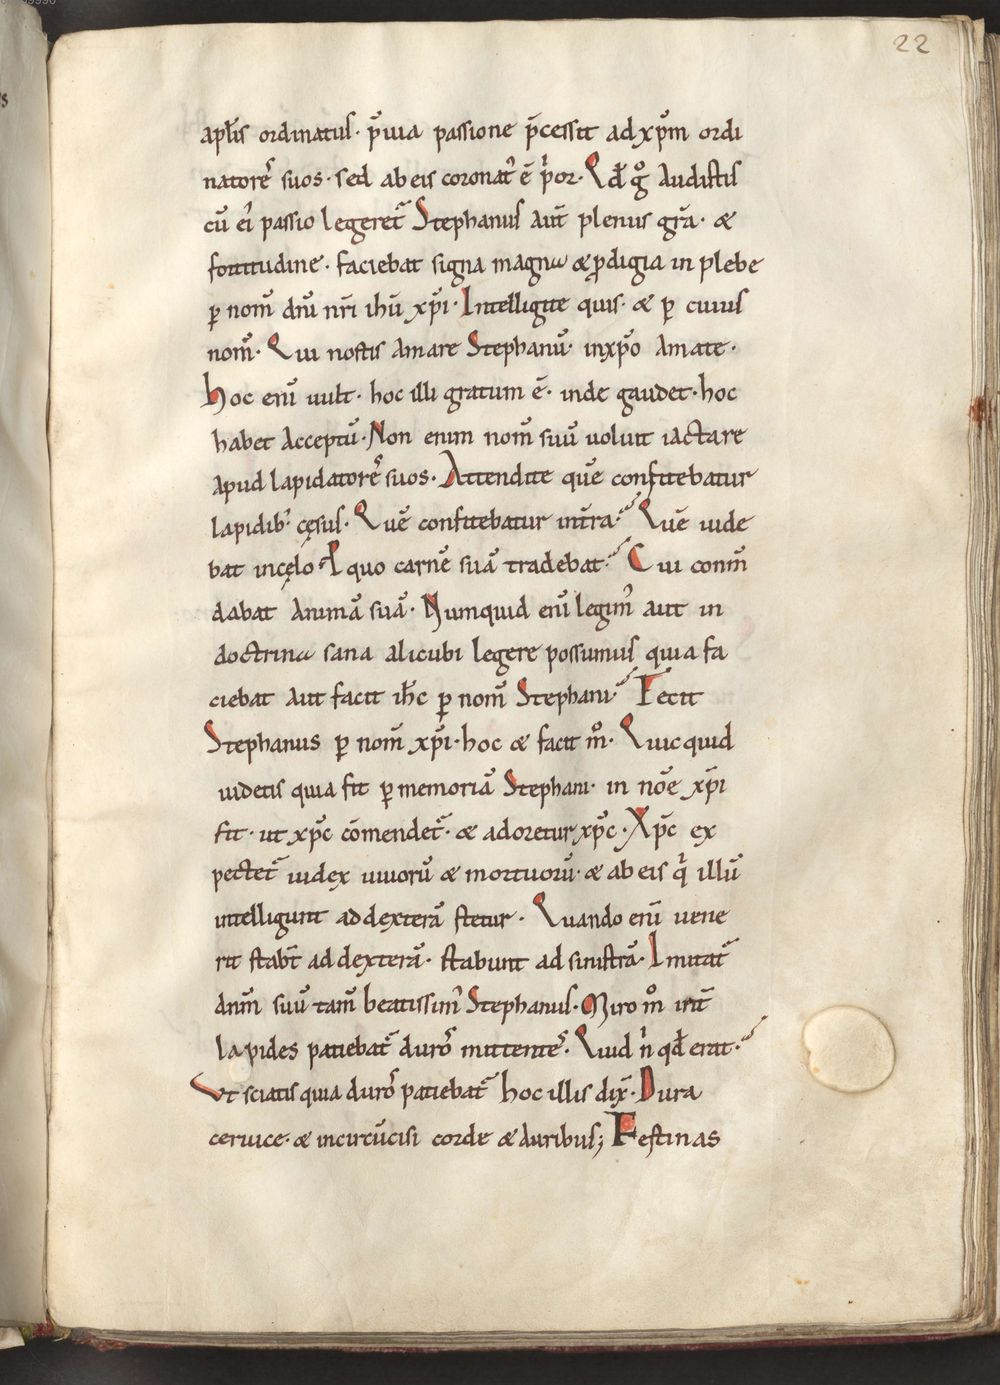 22
apl̅is ordinatus· p̅uia passione p̅cessit ad xp̅m ordi
natorē suos· sed ab eis coronat᾽ ē p̅or· Qđ g̊ Audistis
cū ei᾽ passio legeret᷑ Stephanus aut̄ plenus gr̅a· &
fortitudine· faciebat signa magna & ꝓdigia in plebe
ꝑ nom̄ dn̅i nr̅i ihū xp̅i· Intelligite quis· & ꝑ cuius
nom̄· Qui nostis Amare Stephanū· in xp̅o Amate·
Hoc eni̅ uult· hoc illi gratum ē· inde gaudet· hoc
habet Acceptū· Non enim nom̄ suū uoluit iactare
apud lapidatorē suos· Attendite quē confitebatur
lapidib᾽ cęsus· Quē confitebatur in tr̅a· Quē uide
bat in cęlo· P quo carnē suā tradebat· Cui com̄
dabat Animā suā· Numquid eni̅ legim᾽ aut in
doctrina sana alicubi legere possumus quia fa
ciebat aut facit ih̅c ꝑ nom̄ Stephani· Fecit
Stephanus ꝑ nom̄ xp̅i· hoc & facit m̊· Quicquid
uidetis quia fit ꝑ memoriā Stephani· in no̅e xp̅i
fit· ut xp̅c cōmendet᷑· & adoretur xp̅c· Xp̅c ex
pectet᷑ iudex uiuorū & mortuorū· & ab eis q̇ illū
intelligunt ad dexterā stetur· Quando eni̅ uene
rit stabt̄ ad dexterā· stabunt ad sinistrā· Imitat᷑
dn̅m suū tam̄ beatissim᾽ Stephanus· Miro m̊ int̄
lapides patiebat᷑ durō mittentē· Quid n̓ qđ erat·
Ut sciatis quia durō patiebat᷑ hoc illis dix̄· Dura
ceruice· & incircūcisi corde & auribus; Festinas